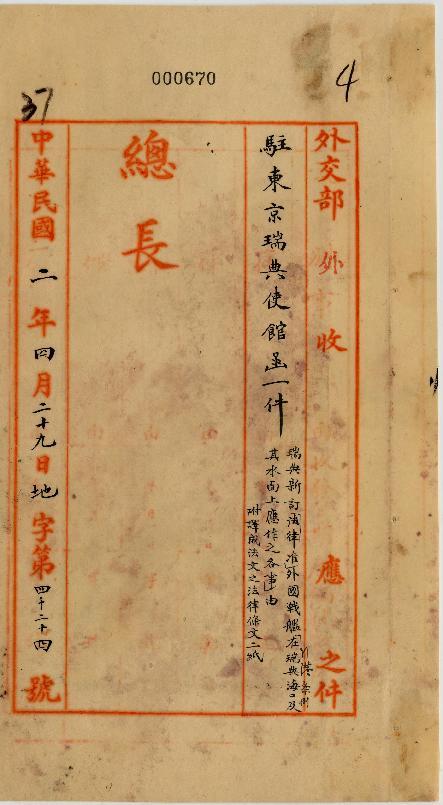 000670
4
37
外交部 外 收 應 之件
駐東京瑞典使館函一件
瑞典新訂法律准外國戰艦在瑞典海口及
進港条例
其水面上應作之各事由
附譯成法文之法律條文二紙
總長
中華民國二年四月二十九日地字第四千二十四號